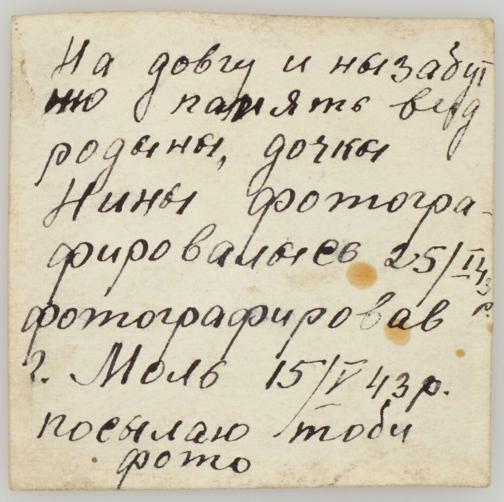 На довгу и нызабут
тю память вид
родыны, дочкы
Нины фотогра-
фировалысь 25/IV 43 р.
фотографировав
г. Моль 15/V 43 р.
посылаю тоби
фото